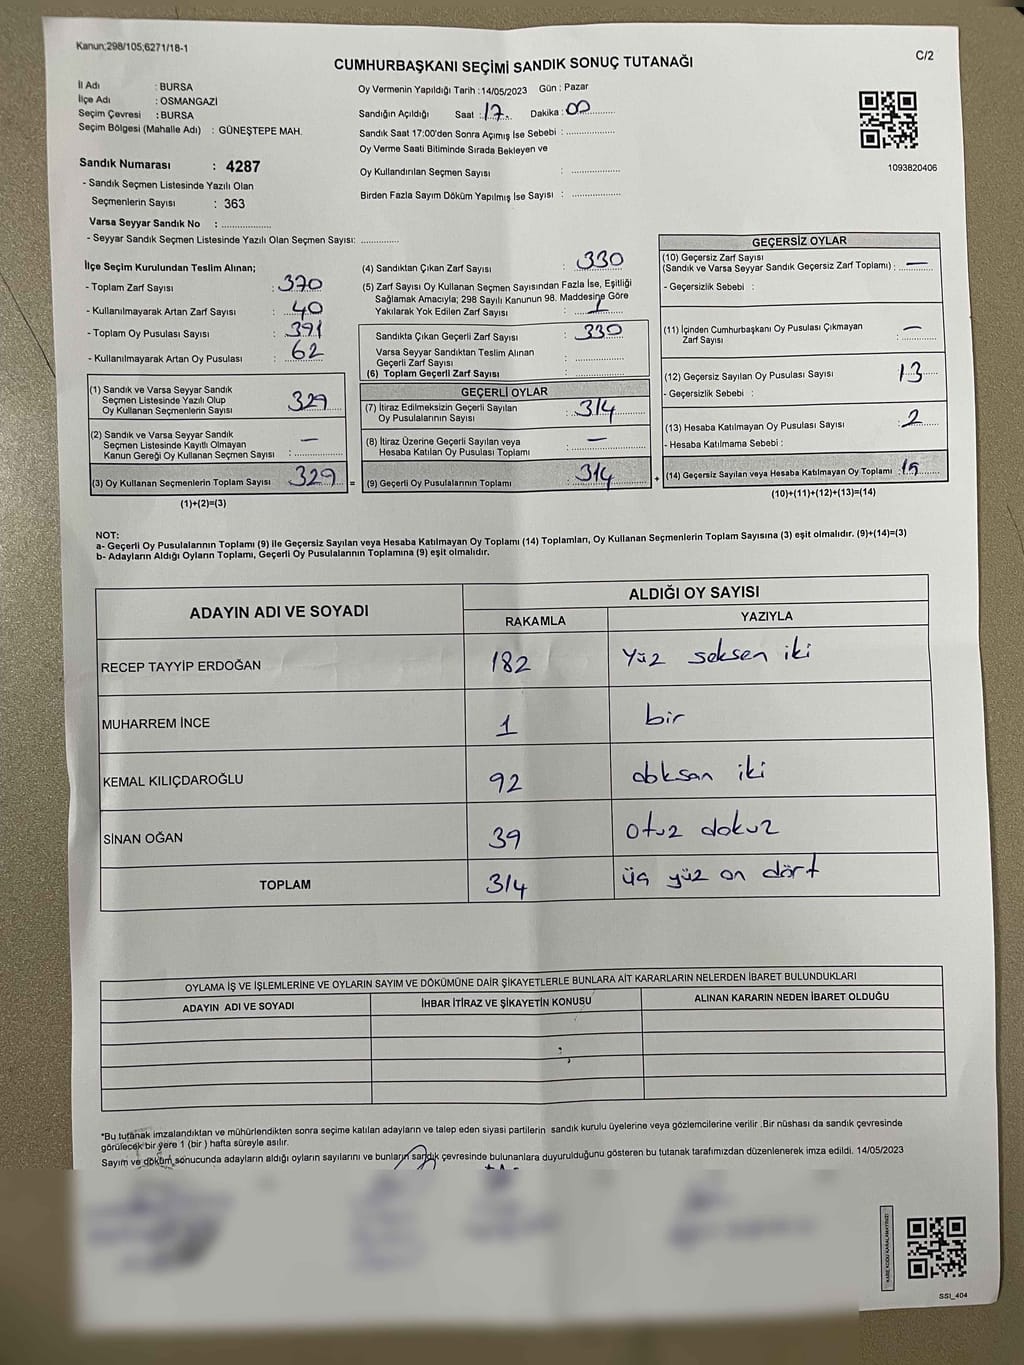 Kanun;298/105;6271/18-1
C/2
CUMHURBAŞKANI SEÇİMİ SANDIK SONUÇ TUTANAĞI
İl Adı : BURSA
İlçe Adı : OSMANGAZİ
Seçim Çevresi : BURSA
Seçim Bölgesi (Mahalle Adı) : GÜNEŞTEPE MAH.
Sandık Numarası : 4287
- Sandık Seçmen Listesinde Yazılı Olan
Seçmenlerin Sayısı : 363
Varsa Seyyar Sandık No : ...................
- Seyyar Sandık Seçmen Listesinde Yazılı Olan Seçmen Sayısı: ..............
Oy Vermenin Yapıldığı Tarih :14/05/2023 Gün : Pazar
Sandığın Açıldığı Saat : 17 Dakika : 00
Sandık Saat 17:00'den Sonra Açımış İse Sebebi : ...................
Oy Verme Saati Bitiminde Sırada Bekleyen ve
Oy Kullandırılan Seçmen Sayısı : ...................
Birden Fazla Sayım Döküm Yapılmış İse Sayısı : ...................
1093820406
İlçe Seçim Kurulundan Teslim Alınan;
- Toplam Zarf Sayısı : 370
- Kullanılmayarak Artan Zarf Sayısı : 40
- Toplam Oy Pusulası Sayısı : 391
- Kullanılmayarak Artan Oy Pusulası : 62
(1) Sandık ve Varsa Seyyar Sandık
Seçmen Listesinde Yazılı Olup
Oy Kullanan Seçmenlerin Sayısı : 329
(2) Sandık ve Varsa Seyyar Sandık
Seçmen Listesinde Kayıtlı Olmayan
Kanun Gereği Oy Kullanan Seçmen Sayısı : —
(3) Oy Kullanan Seçmenlerin Toplam Sayısı 329 =
(1)+(2)=(3)
(4) Sandıktan Çıkan Zarf Sayısı : 330
(5) Zarf Sayısı Oy Kullanan Seçmen Sayısından Fazla İse, Eşitliği
Sağlamak Amacıyla; 298 Sayılı Kanunun 98. Maddesine Göre
Yakılarak Yok Edilen Zarf Sayısı : 1
Sandıkta Çıkan Geçerli Zarf Sayısı : 330
Varsa Seyyar Sandıktan Teslim Alınan
Geçerli Zarf Sayısı : ...................
(6) Toplam Geçerli Zarf Sayısı : ...................
GEÇERLİ OYLAR
(7) İtiraz Edilmeksizin Geçerli Sayılan
Oy Pusulalarının Sayısı : 314
(8) İtiraz Üzerine Geçerli Sayılan veya
Hesaba Katılan Oy Pusulası Toplamı : —
(9) Geçerli Oy Pusulalarının Toplamı : 314 +
GEÇERSİZ OYLAR
(10) Geçersiz Zarf Sayısı
(Sandık ve Varsa Seyyar Sandık Geçersiz Zarf Toplamı) : —
- Geçersizlik Sebebi :
(11) İçinden Cumhurbaşkanı Oy Pusulası Çıkmayan
Zarf Sayısı : —
(12) Geçersiz Sayılan Oy Pusulası Sayısı : 13
- Geçersizlik Sebebi :
(13) Hesaba Katılmayan Oy Pusulası Sayısı : 2
- Hesaba Katılmama Sebebi :
(14) Geçersiz Sayılan veya Hesaba Katılmayan Oy Toplamı : 15
(10)+(11)+(12)+(13)=(14)
NOT:
a- Geçerli Oy Pusulalarının Toplamı (9) ile Geçersiz Sayılan veya Hesaba Katılmayan Oy Toplamı (14) Toplamları, Oy Kullanan Seçmenlerin Toplam Sayısına (3) eşit olmalıdır. (9)+(14)=(3)
b- Adayların Aldığı Oyların Toplamı, Geçerli Oy Pusulalarının Toplamına (9) eşit olmalıdır.
ADAYIN ADI VE SOYADI
ALDIĞI OY SAYISI
RAKAMLA YAZIYLA
RECEP TAYYİP ERDOĞAN 182 Yüz seksen iki
MUHARREM İNCE 1 bir
KEMAL KILIÇDAROĞLU 92 doksan iki
SİNAN OĞAN 39 otuz dokuz
TOPLAM 314 üç yüz on dört
OYLAMA İŞ VE İŞLEMLERİNE VE OYLARIN SAYIM VE DÖKÜMÜNE DAİR ŞİKAYETLERLE BUNLARA AİT KARARLARIN NELERDEN İBARET BULUNDUKLARI
ADAYIN ADI VE SOYADI İHBAR İTİRAZ VE ŞİKAYETİN KONUSU ALINAN KARARIN NEDEN İBARET OLDUĞU
*Bu tutanak imzalandıktan ve mühürlendikten sonra seçime katılan adayların ve talep eden siyasi partilerin sandık kurulu üyelerine veya gözlemcilerine verilir .Bir nüshası da sandık çevresinde
görülecek bir yere 1 (bir ) hafta süreyle asılır.
Sayım ve döküm sonucunda adayların aldığı oyların sayılarını ve bunların sandık çevresinde bulunanlara duyurulduğunu gösteren bu tutanak tarafımızdan düzenlenerek imza edildi. 14/05/2023
KARE KODU KARALAMAYINIZ!
SSI_404